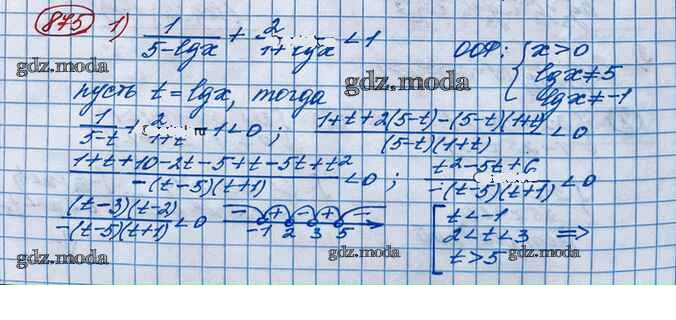 875 1) 1/(5-lgx) + 2/(1+lgx) < 1
ООФ: { x>0
lgx≠5
lgx≠-1
gdz.moda
gdz.moda
пусть t = lgx, тогда
1/(5-t) + 2/(1+t) - 1 < 0 ; (1+t+2(5-t)-(5-t)(1+t))/((5-t)(1+t)) < 0
(1+t+10-2t-5+t-5t+t²)/(-(t-5)(t+1)) < 0 ; (t²-5t+6)/(-(t-5)(t+1)) < 0
(t-3)(t-2)/(-(t-5)(t+1)) < 0
- + - + -
-1 2 3 5
[ t<-1
2<t<3 =>
t>5
gdz.moda
gdz.moda
gdz.moda